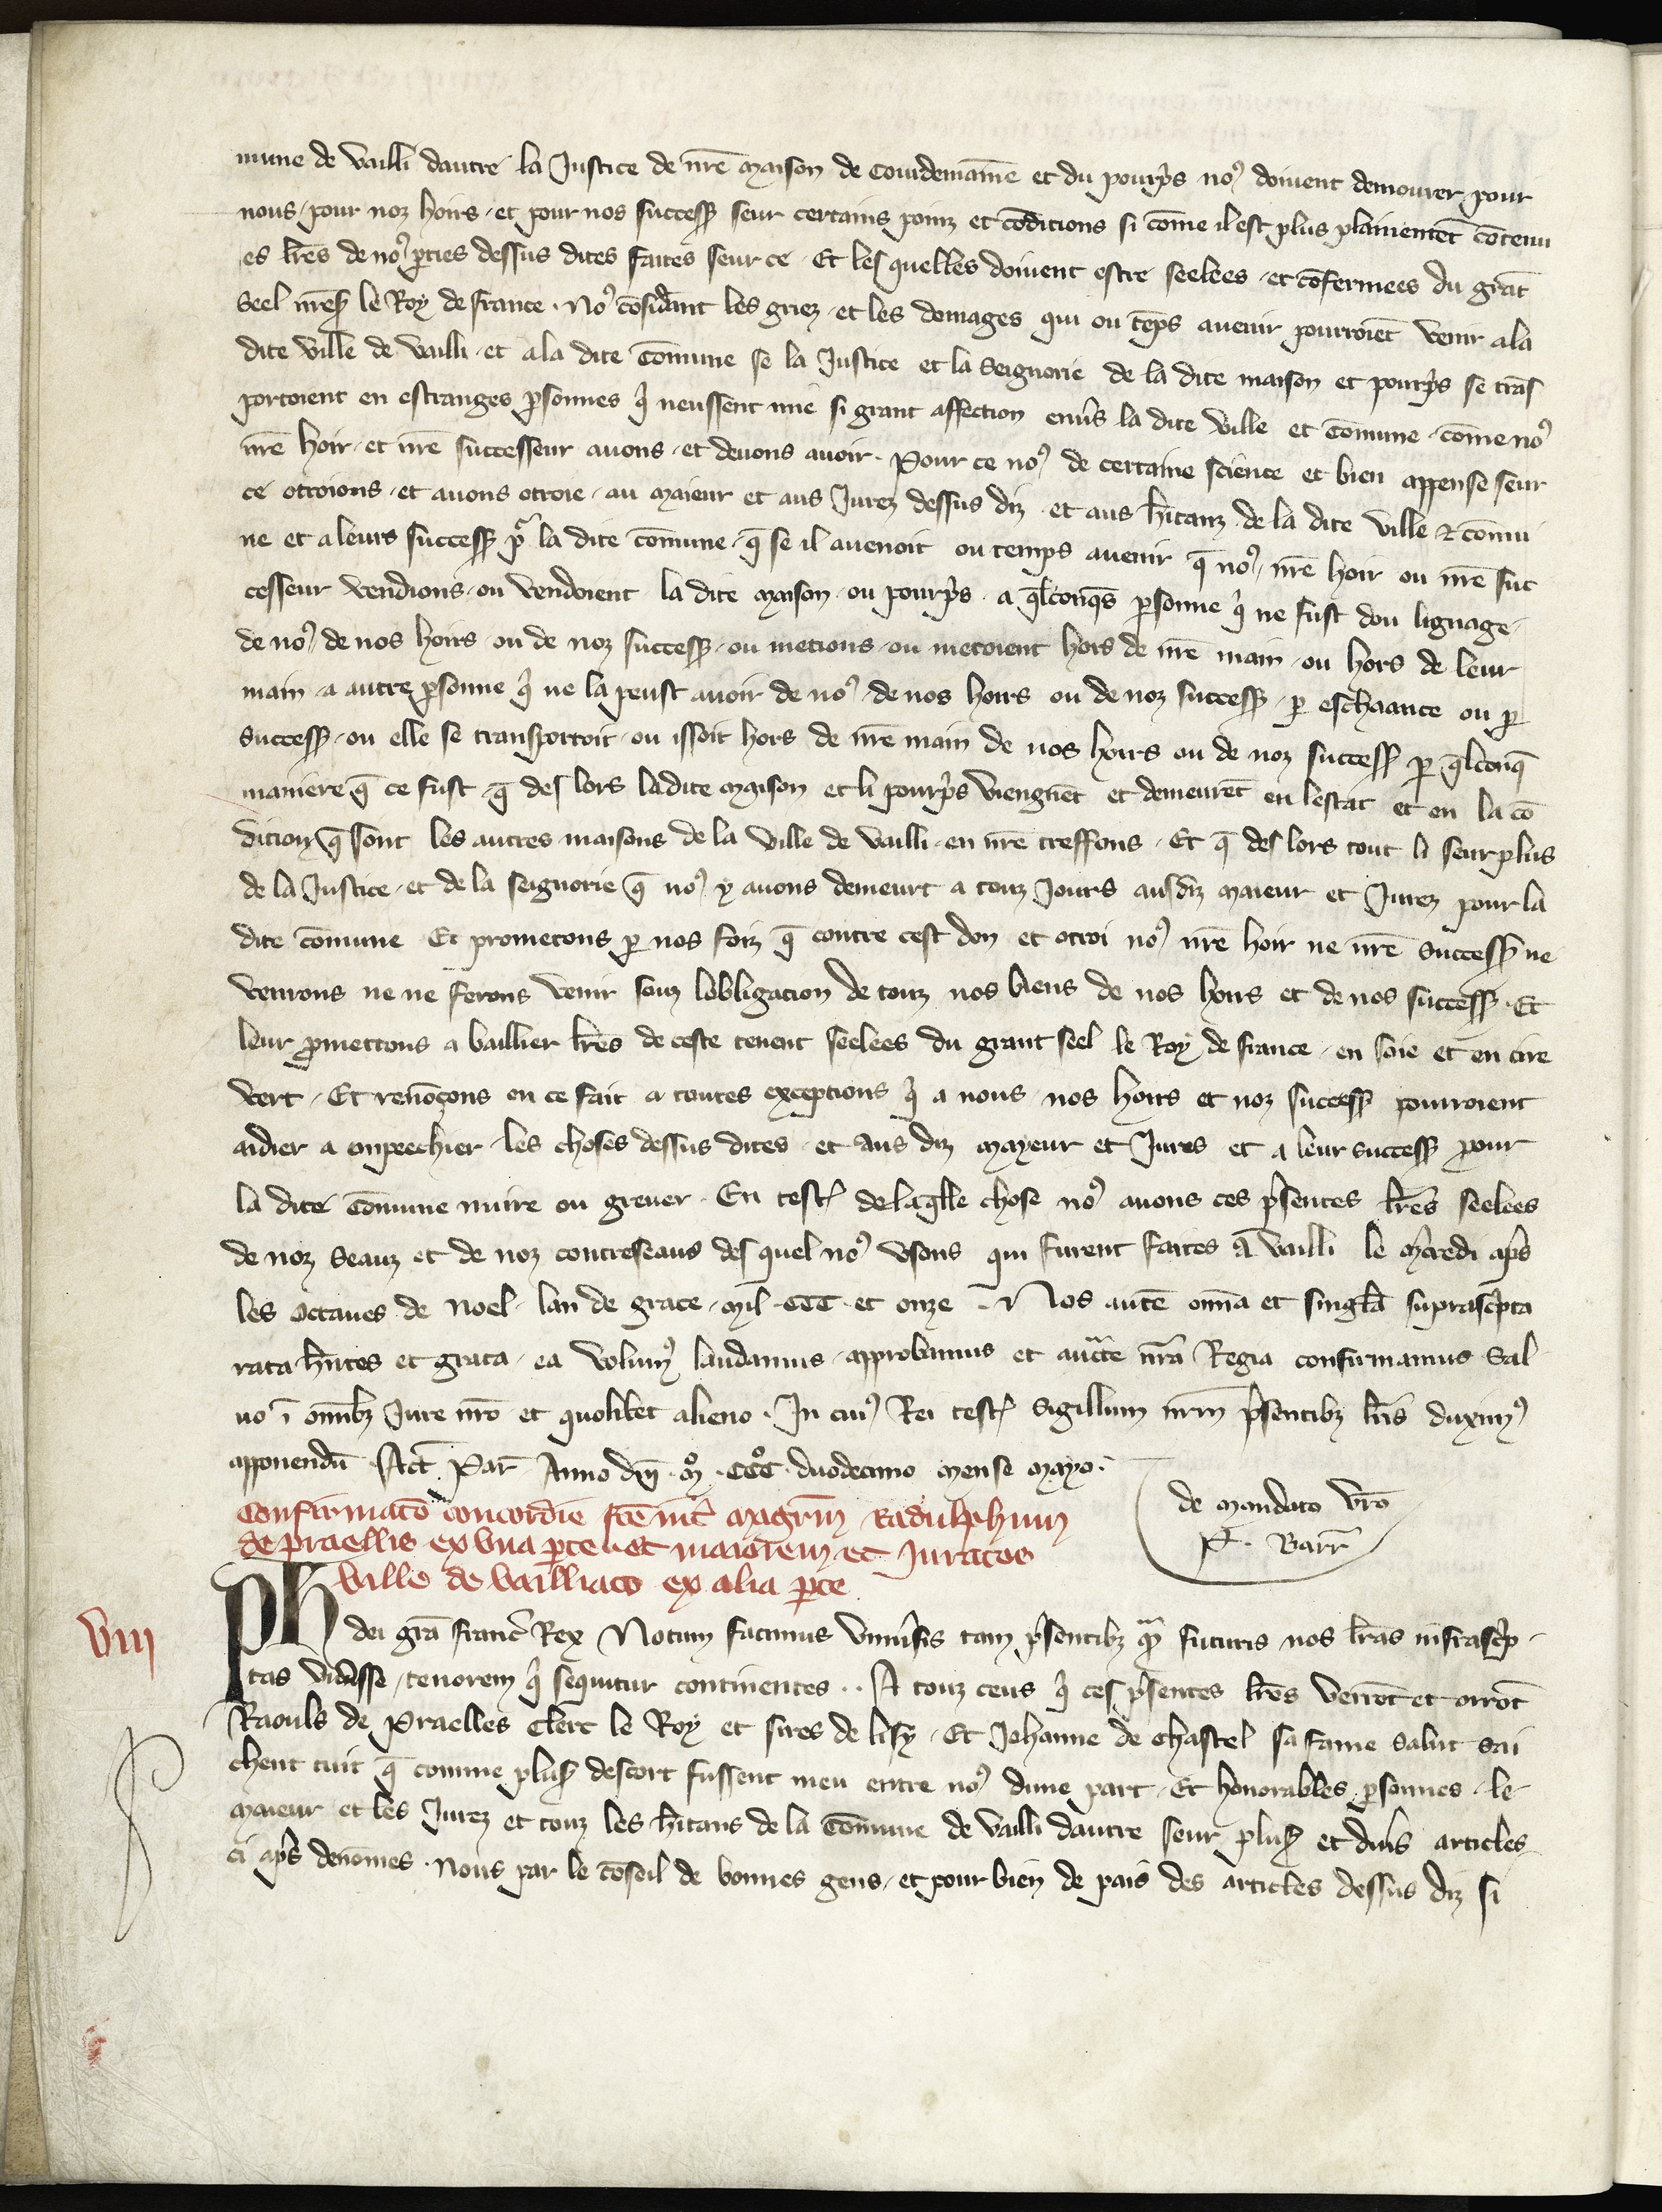 mune de vailli dautre la Justice de nr̄e maison de Courdemaīne et du pourp̾s no᷒ doiuent demourer pour
nous pour noz hoirs et pour nos success᷒ seur certains poinz et cōdicions si cōme il est plus plainemēt cōtenu
es lr̄es de no᷒ p̱ties dessus dites faites seur ce Et lesquelles doiuent estre seelees et cōfermees du grāt
Seel nr̄es᷒ le Roy de france . No᷒ cōsid̾ant les griez et les domages qui ou tēps auenir pourroiēt venir a la
dite ville de Vailli et a la dite Cōmune se la Justice et la Seignorie de la dite maison et pourp̾s se trās
portoient en estranges p̱sonnes q̾ neussent mie si grant affection enu̾s la dite ville et Cōmune cōme no᷒
nr̄e hoir et nr̄e successeur auons et deuons auoir . Pour ce no᷒ de certaine science et bien appense seur
ce otroions et auons otroie au maieur et aus Jurez dessus diz et aus h̄itanz de la dite ville & cōmu
ne et a leurs success᷒ p̱r la dite Cōmune q̄ se il auenoit ou temps auenir q̄ no᷒ nr̄e hoir ou nr̄e suc
cesseur vendions ou vendoient la dite maison ou pourp̾s a q̄lconq̄s p̱sonne q̾ ne fust dou lignage
de no᷒ de nos hoirs ou de noz success᷒ ou metions ou metoient hors de nr̄e main ou hors de leur
main a autre p̱sonne q̾ ne la peust auoir de no᷒ de nos hoirs ou de noz success᷒ p̱ eschaance ou p̱
success᷒ ou elle se transportoit ou issoit hors de nr̄e main de nos hoirs ou de noz success᷒ p̱ q̄lconq̄
maniere q̄ ce fust q̄ des lors ladite maison et li pourp̾s viengnēt et demeurēt en lestat et en la cō
dicion q̄ sont les autres maisons de la ville de vailli en nr̄e treffons . Et q̄ des lors tout li seurplus
de la Justice et de la seignorie q̄ no᷒ y auons demeurt a touz Jours ausdiz maieur et Jurez pour la
dite cōmune Et prometons p̱ nos foiz q̄ contre cest don et otroi no᷒ nr̄e hoir ne nr̄e Success᷒ ne
venrons ne ne ferons venir souz lobligacion de touz nos biens de nos hoirs et de nos success᷒ . Et
leur p̱mettons a baillier lr̄es de ceste teneur seelees du grant seel le Roy de france en soie et en cire
vert . Et renōçons en ce fait a toutes exceptions q̾ a nous nos hoirs et noz success᷒ pourroient
aidier a enpeechier les choses dessus dites et aus diz mayeur et Jures et a leur success᷒ pour
la dite Cōmune nuire ou greuer . En test᷒ de laq̄lle chose no᷒ auons ces p̾sentes lr̄es seelees
de noz Seauz et de noz contreseaus des quel no᷒ vsons qui furent faites A vailli le m̾credi ap̾s
les octaues de Noel lan de grace mil CCC et onze . Nos autē om̄a et singl̄a suprasc̾pta
rata h̄ntes et grata ea volum᷒ laudamus approbamus et auct̄te nr̄a Regia confirmamus Sal
uo ī om̄ibz Jure nr̄o et quolibet alieno . In cui᷒ Rei test᷒ Sigillum nr̄m p̾sentibz lr̄is duxim᷒
apponendū . Act̄ Par̄ Anno dn̄i M° CCC° duodecimo mense mayo .
de mandato vr̄o
P. Barr̄
Confirmatō concordie fc̄e int̾ magr̄m Radulphum
de praellis ex vna p̱te et maiorem et Juratos
ville de vailliaco ex alia p̱te
VIII
Ph dei gr̄a franc̾ Rex Notum facimus vniu̾sis tam p̾sentibz q̄m futuris nos lr̄as infrasc̾p
tas vidisse tenorem q̾ sequitur continentes . . A touz ceus q̾ ces p̾sentes lr̄es verrōt et orrōt
Raouls de Praelles Clerc le Roy et sires de lisy Et Jehanne de Chastel sa fame salut Sai
chent tuit q̄ comme plus᷒ descort fussent meu entre no᷒ dune part Et honorables p̱sonnes le
maieur et les Jurez et touz les h̄itans de la Cōmune de vailli dautre seur plus᷒ et diu̾s articles
ci ap̾s denōmes . Nous par le cōseil de bonnes gens et pour bien de pais des articles dessus diz si